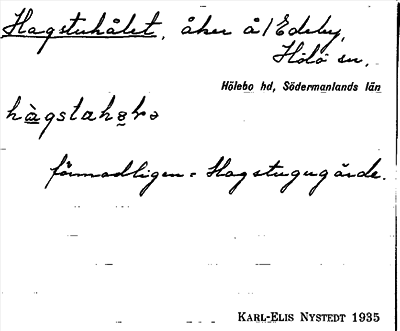 Hagstuhålet, åker å/Edeby,
Hölö sn.
Hölebo hd, Södermanlands län
förmodligen = Hagstugugärde.
KARL-ELIS NYSTEDT 1935